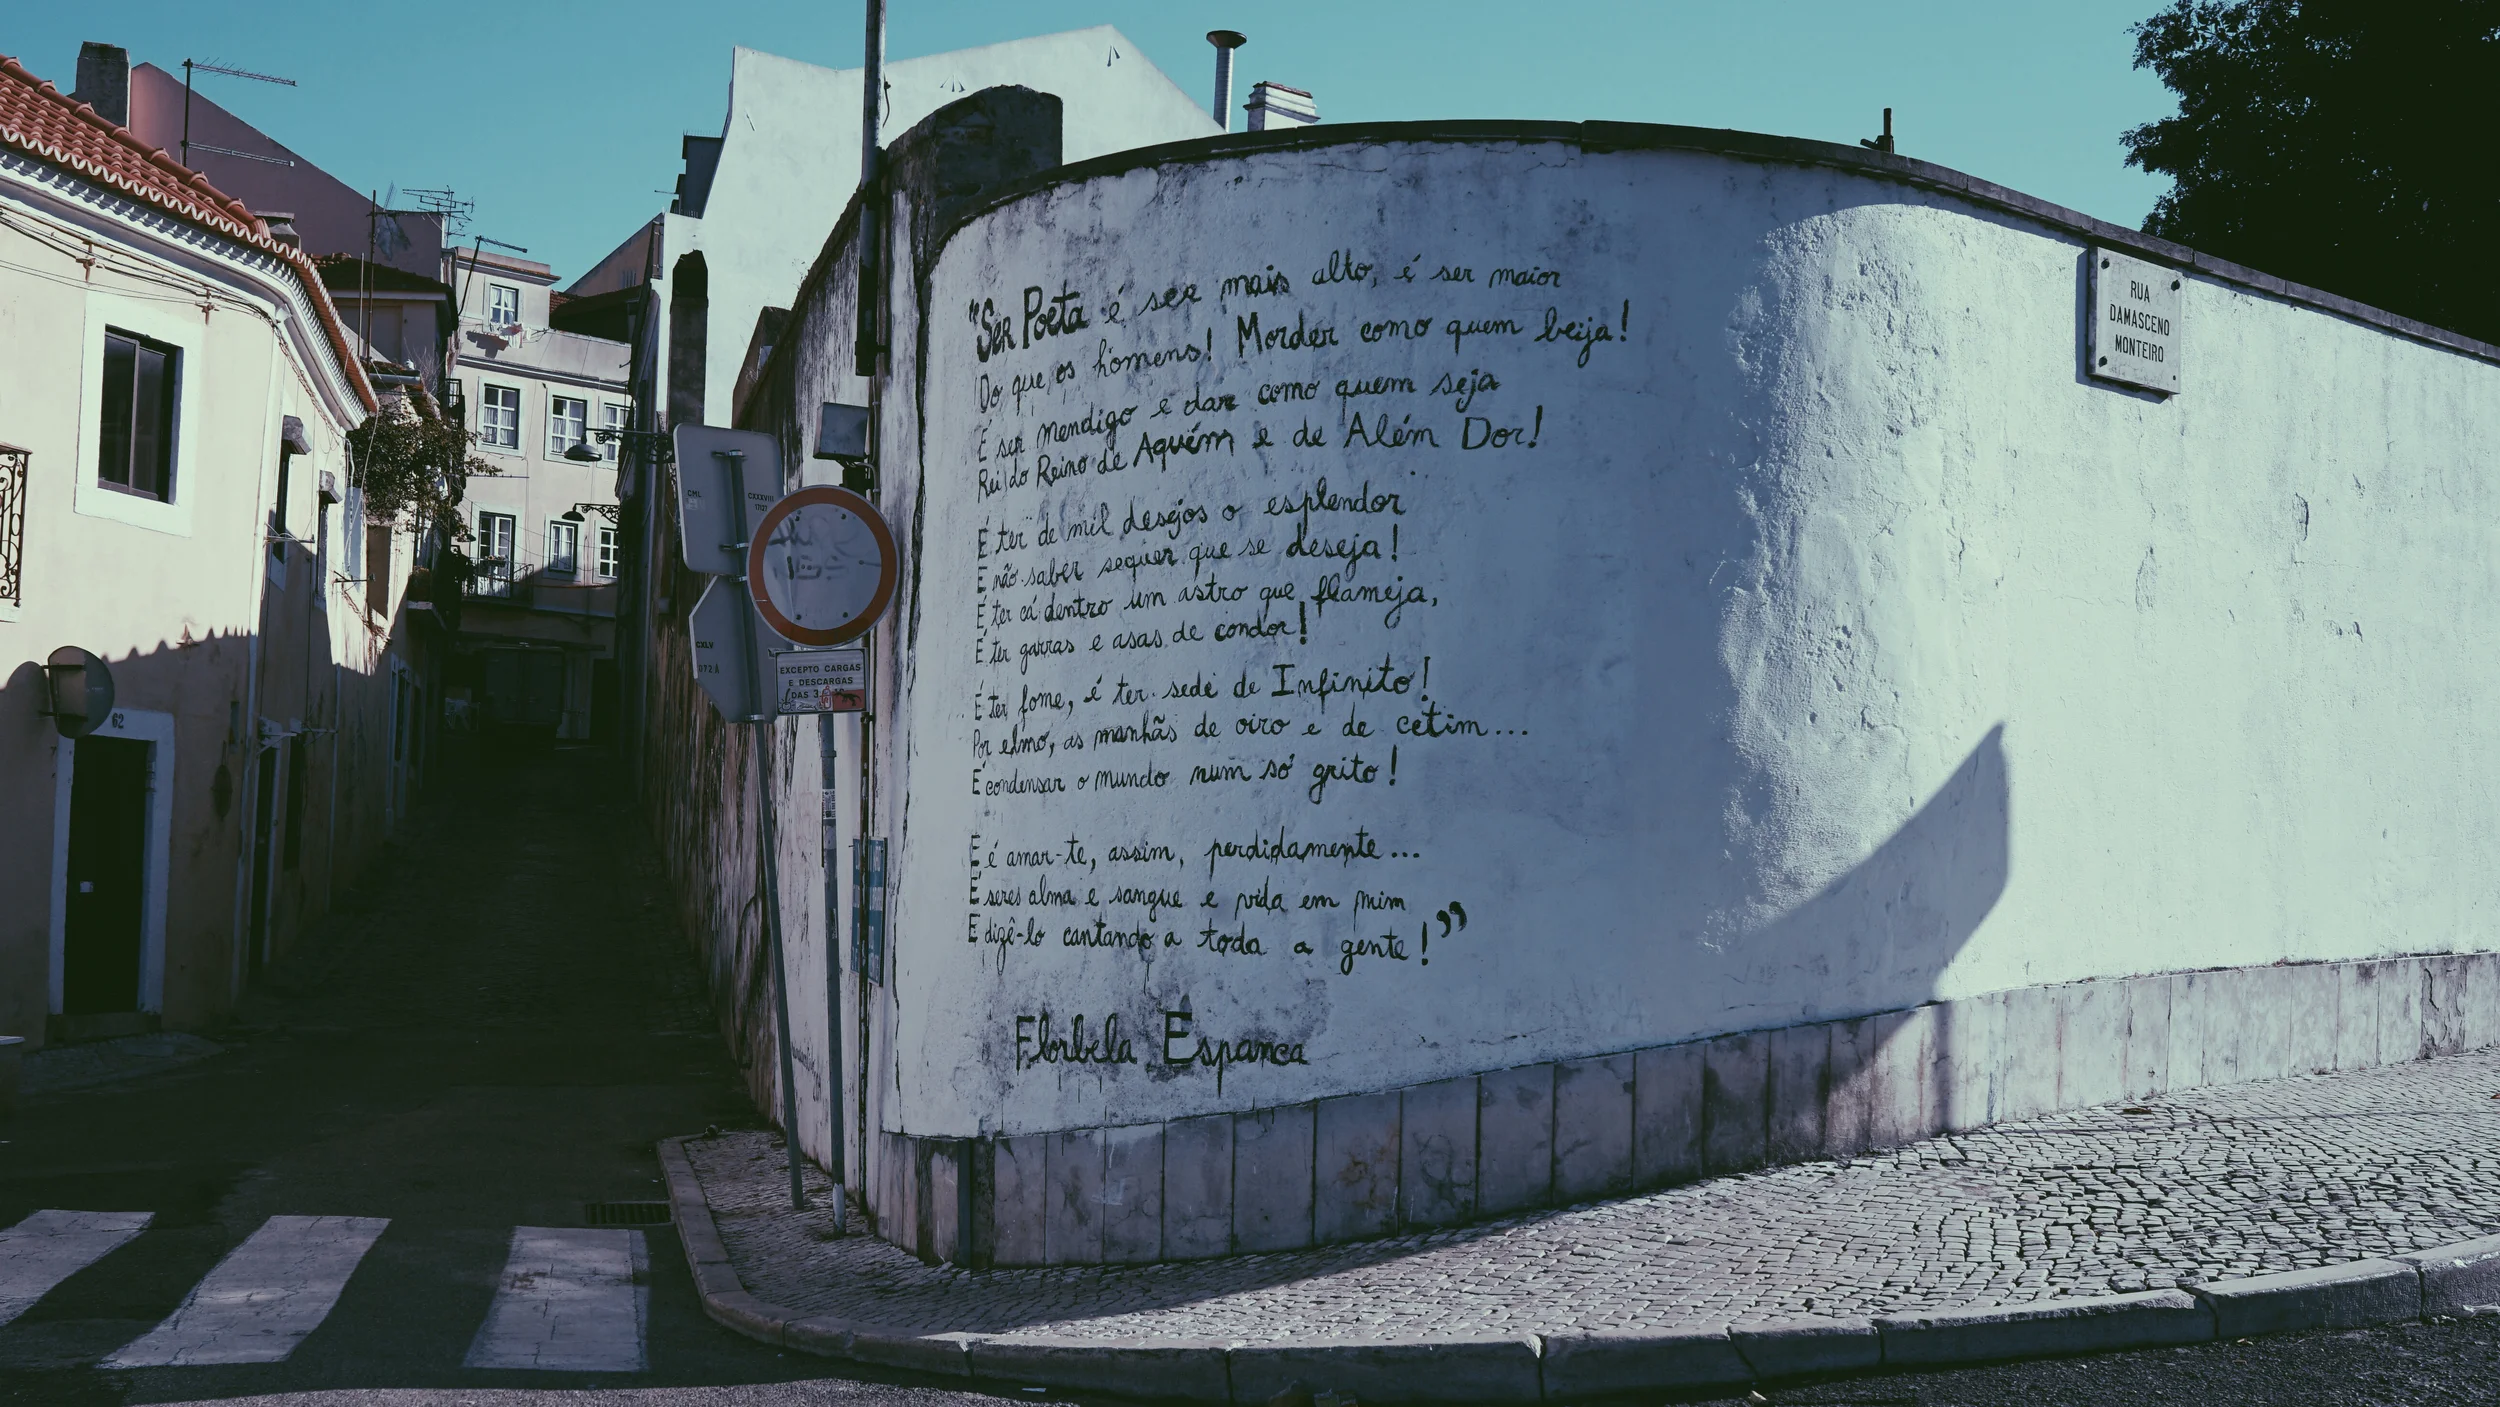 "Ser Poeta é ser mais alto, é ser maior
Do que os homens! Morder como quem beija!
É ser mendigo e dar como quem seja
Rei do Reino de Aquém e de Além Dor!
É ter de mil desejos o esplendor
E não saber sequer que se deseja!
É ter cá dentro um astro que flameja,
É ter garras e asas de condor!
É ter fome, é ter sede de Infinito!
Por elmo, as manhãs de oiro e de cetim...
É condensar o mundo num só grito!
E é amar-te, assim, perdidamente...
É seres alma e sangue e vida em mim
E dizê-lo cantando a toda a gente!"
Florbela Espanca
RUA
DAMASCENO
MONTEIRO
CML
CXXXVIII
17127
CXLV
072 A
EXCEPTO CARGAS
E DESCARGAS
DAS
62